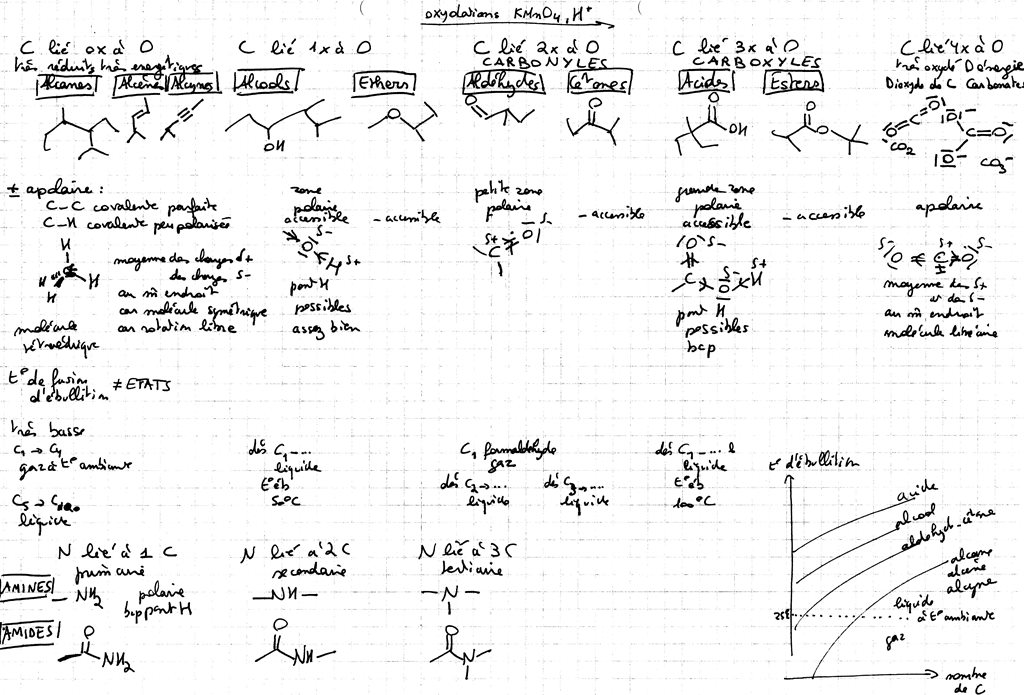 oxydations KMnO4, H+
C lié 0x à O
très réduits très énergétiques
Alcanes Alcènes Alcynes
C lié 1x à O
Alcools Ethers
OH
O
C lié 2x à O
CARBONYLES
Aldéhydes Cétones
O
O
C lié 3x à O
CARBOXYLES
Acides Esters
O
OH
O
O
C lié 4x à O
très oxydé
Dioxyde de C Carbonates
O=C=O
CO2
CO3-
± apolaire :
C-C covalente parfaite
C-H covalente peu polarisée
H
H H
H
molécule
tétraédrique
moyenne des charges δ+
des charges δ-
au m̂ endroit
car molécule symétrique
car rotation libre
zone
polaire
accessible
- accessible
O δ-
H δ+
pont H
possibles
assez bien
petite zone
polaire
- accessible
δ+ C O δ-
grande zone
polaire
accessible
- accessible
O δ-
δ- δ+
C O H
pont H
possibles
bcp
apolaire
δ- δ+ δ-
O C O
moyenne des δ+
et des δ-
au m̂ endroit
molécule linéaire
t° de fusion
d'ébullition ≠ ETATS
très basse
C1 → C4
gaz à t° ambiante
C5 →
liquide
dès C1 ....
liquide
t° éb
50°C
C1 formaldehyde
gaz
dès C2 → ...
liquide
dès C3 → ...
liquide
dès C1 ....
liquide
t° éb
100°C
N lié à 1 C
primaire
N lié à 2 C
secondaire
N lié à 3 C
tertiaire
AMINES
NH2
polaire
bcp pont H
-NH-
-N-
AMIDES
O
NH2
O
NH
O
N
t° d'ébullition
acide
alcool
aldehyd - cétone
alcane
alcène
alcyne
25°
liquide
à t° ambiante
gaz
nombre
de C